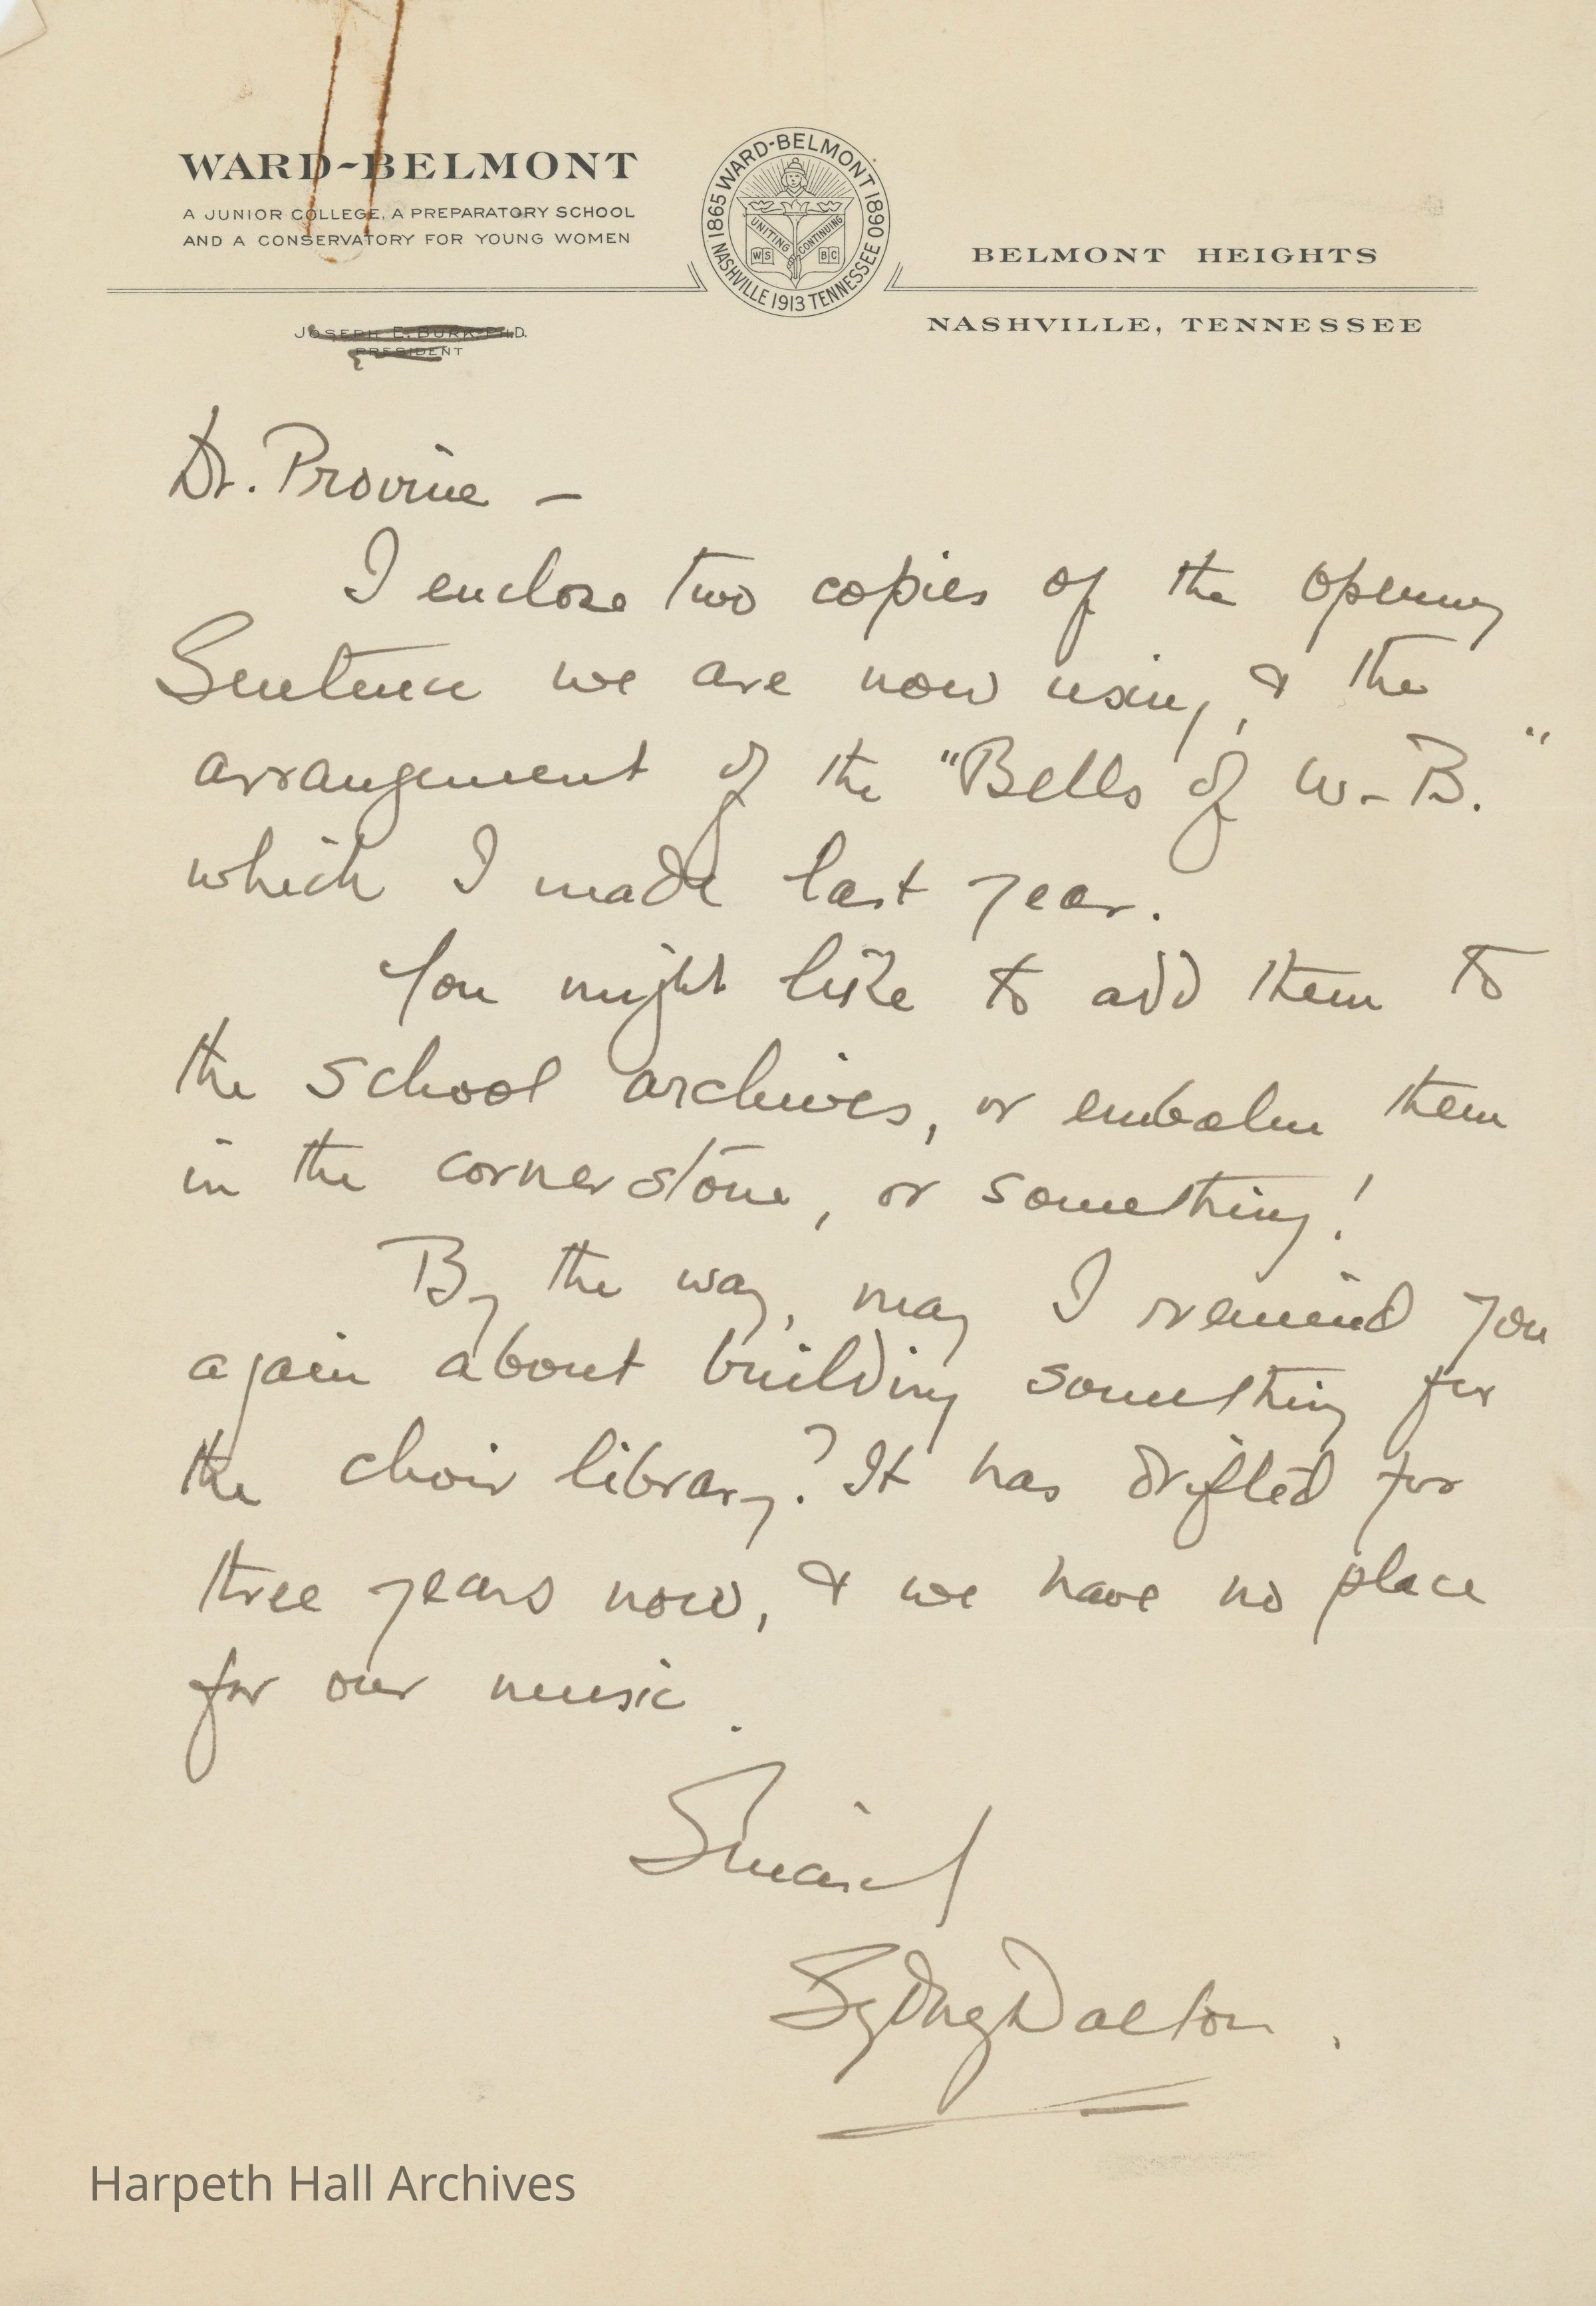 WARD-BELMONT
A JUNIOR COLLEGE, A PREPARATORY SCHOOL
AND A CONSERVATORY FOR YOUNG WOMEN
1865 WARD-BELMONT 1890
NASHVILLE 1913 TENNESSEE
UNITING CONTINUING
WS BC
BELMONT HEIGHTS
NASHVILLE, TENNESSEE
JOSEPH E. BURK PH.D.
PRESIDENT
Dr. Provine –
I enclose two copies of the opening
Sentence we are now using, & the
arrangement of the "Bells of W-B."
which I made last year.
You might like to add them to
the school archives, or embalm them
in the cornerstone, or something!
By the way, may I remind you
again about building something for
the choir library? It has drifted for
three years now, & we have no place
for our music.
Sydney Dalton.
Harpeth Hall Archives